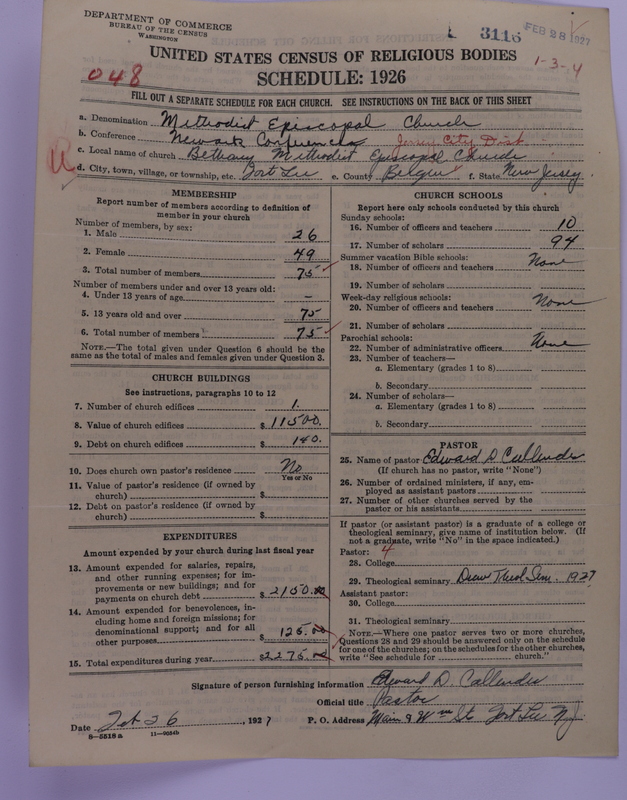 DEPARTMENT OF COMMERCE
BUREAU OF THE CENSUS
WASHINGTON
3116
FEB 28 1927
1-3-4
048
UNITED STATES CENSUS OF RELIGIOUS BODIES
SCHEDULE: 1926
FILL OUT A SEPARATE SCHEDULE FOR EACH CHURCH. SEE INSTRUCTIONS ON THE BACK OF THIS SHEET
a. Denomination Methodist Episcopal Church
b. Conference Newark Conference Jersey City Dist
c. Local name of church Bethany Methodist Episcopal Church
d. City, town, village, or township, etc. Fort Lee e. County Bergen f. State New Jersey
MEMBERSHIP
Report number of members according to definition of
member in your church
Number of members, by sex:
1. Male 26
2. Female 49
3. Total number of members 75
Number of members under and over 13 years old:
4. Under 13 years of age –
5. 13 years old and over 75
6. Total number of members 75
NOTE.—The total given under Question 6 should be the
same as the total of males and females given under Question 3.
CHURCH BUILDINGS
See instructions, paragraphs 10 to 12
7. Number of church edifices 1.
8. Value of church edifices $ 11500.
9. Debt on church edifices $ 140.
10. Does church own pastor's residence No
Yes or No
11. Value of pastor's residence (if owned by
church) $
12. Debt on pastor's residence (if owned by
church) $
EXPENDITURES
Amount expended by your church during last fiscal year
13. Amount expended for salaries, repairs,
and other running expenses; for im-
provements or new buildings; and for
payments on church debt $ 2150.00
14. Amount expended for benevolences, in-
cluding home and foreign missions; for
denominational support; and for all
other purposes $ 125.00
15. Total expenditures during year $ 2275.00
CHURCH SCHOOLS
Report here only schools conducted by this church
Sunday schools:
16. Number of officers and teachers 10
17. Number of scholars 94
Summer vacation Bible schools:
18. Number of officers and teachers None
19. Number of scholars
Week-day religious schools:
20. Number of officers and teachers None
21. Number of scholars
Parochial schools:
22. Number of administrative officers None
23. Number of teachers—
a. Elementary (grades 1 to 8)
b. Secondary
24. Number of scholars—
a. Elementary (grades 1 to 8)
b. Secondary
PASTOR
25. Name of pastor Edward D Callender
(If church has no pastor, write "None")
26. Number of ordained ministers, if any, em-
ployed as assistant pastors
27. Number of other churches served by the
pastor or his assistants
If pastor (or assistant pastor) is a graduate of a college or
theological seminary, give name of institution below. (If
not a graduate, write "No" in the space indicated.)
Pastor: 4
28. College
29. Theological seminary Drew Theol Sem. 1927
Assistant pastor:
30. College
31. Theological seminary
NOTE.—Where one pastor serves two or more churches,
Questions 28 and 29 should be answered only on the schedule
for one of the churches; on the schedules for the other churches,
write "See schedule for church."
Signature of person furnishing information Edward D. Callender
Official title Pastor
Date Feb 26, 1927 P. O. Address Main & Wm St Fort Lee NJ
8-5518a 11-9054b